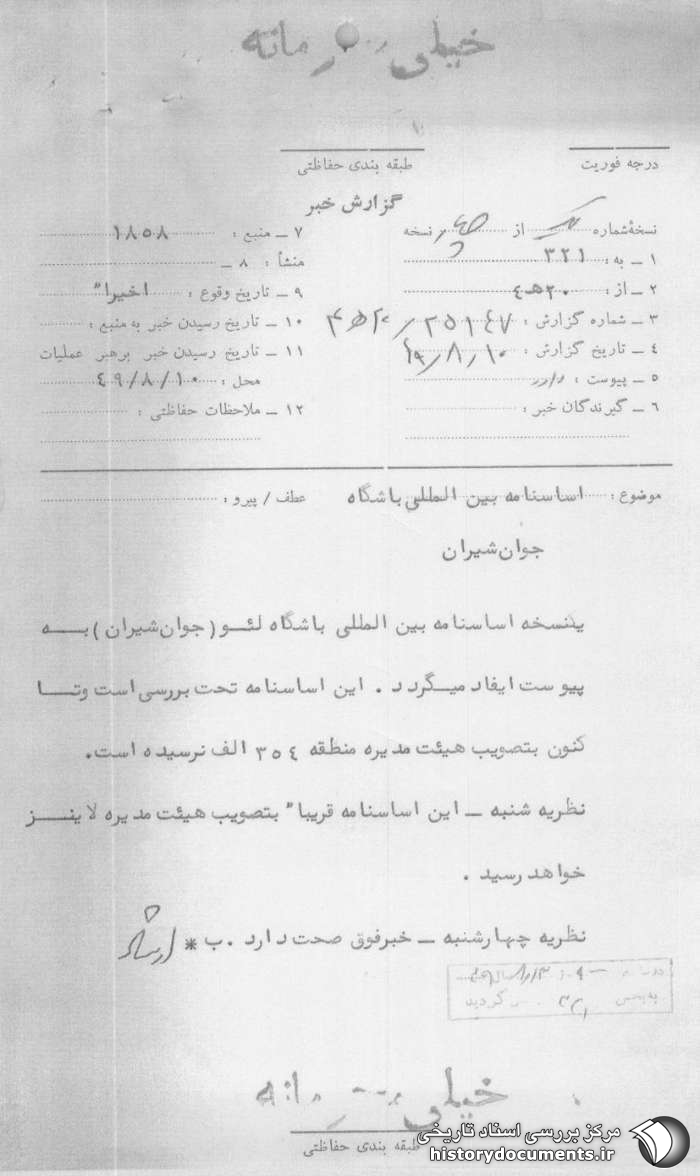 خیلی محرمانه
درجه فوریت
طبقه بندی حفاظتی
گزارش خبر
نسخهٔ شماره از نسخه
۱ ـ به : ۳۲۱
۲ ـ از : ۲۰ هـ ٤
۳ ـ شماره گزارش :
٤ ـ تاریخ گزارش : ۴۹/۸/۱۰
۵ ـ پیوست : دارد
۶ ـ گیرندگان خبر :
۷ ـ منبع : ۱۸۵۸
۸ ـ منشأ :
۹ ـ تاریخ وقوع : اخیرا"
۱۰ ـ تاریخ رسیدن خبر به منبع :
۱۱ ـ تاریخ رسیدن خبر برهبر عملیات
محل : ٤۹/۸/۱۰
۱۲ ـ ملاحظات حفاظتی :
موضوع : اساسنامه بین المللی باشگاه
عطف / پیرو :
جوان شیران
یکنسخه اساسنامه بین المللی باشگاه لئو (جوان شیران) به
پیوست ایفاد میگردد . این اساسنامه تحت بررسی است وتا
کنون بتصویب هیئت مدیره منطقه ۳۵٤ الف نرسیده است.
نظریه شنبه ـ این اساسنامه قریبا" بتصویب هیئت مدیره لاینز
خواهد رسید .
نظریه چهارشنبه ـ خبرفوق صحت دارد .ب *
گردید
خیلی محرمانه
طبقه بندی حفاظتی
مرکز بررسی اسناد تاریخی
historydocuments.ir